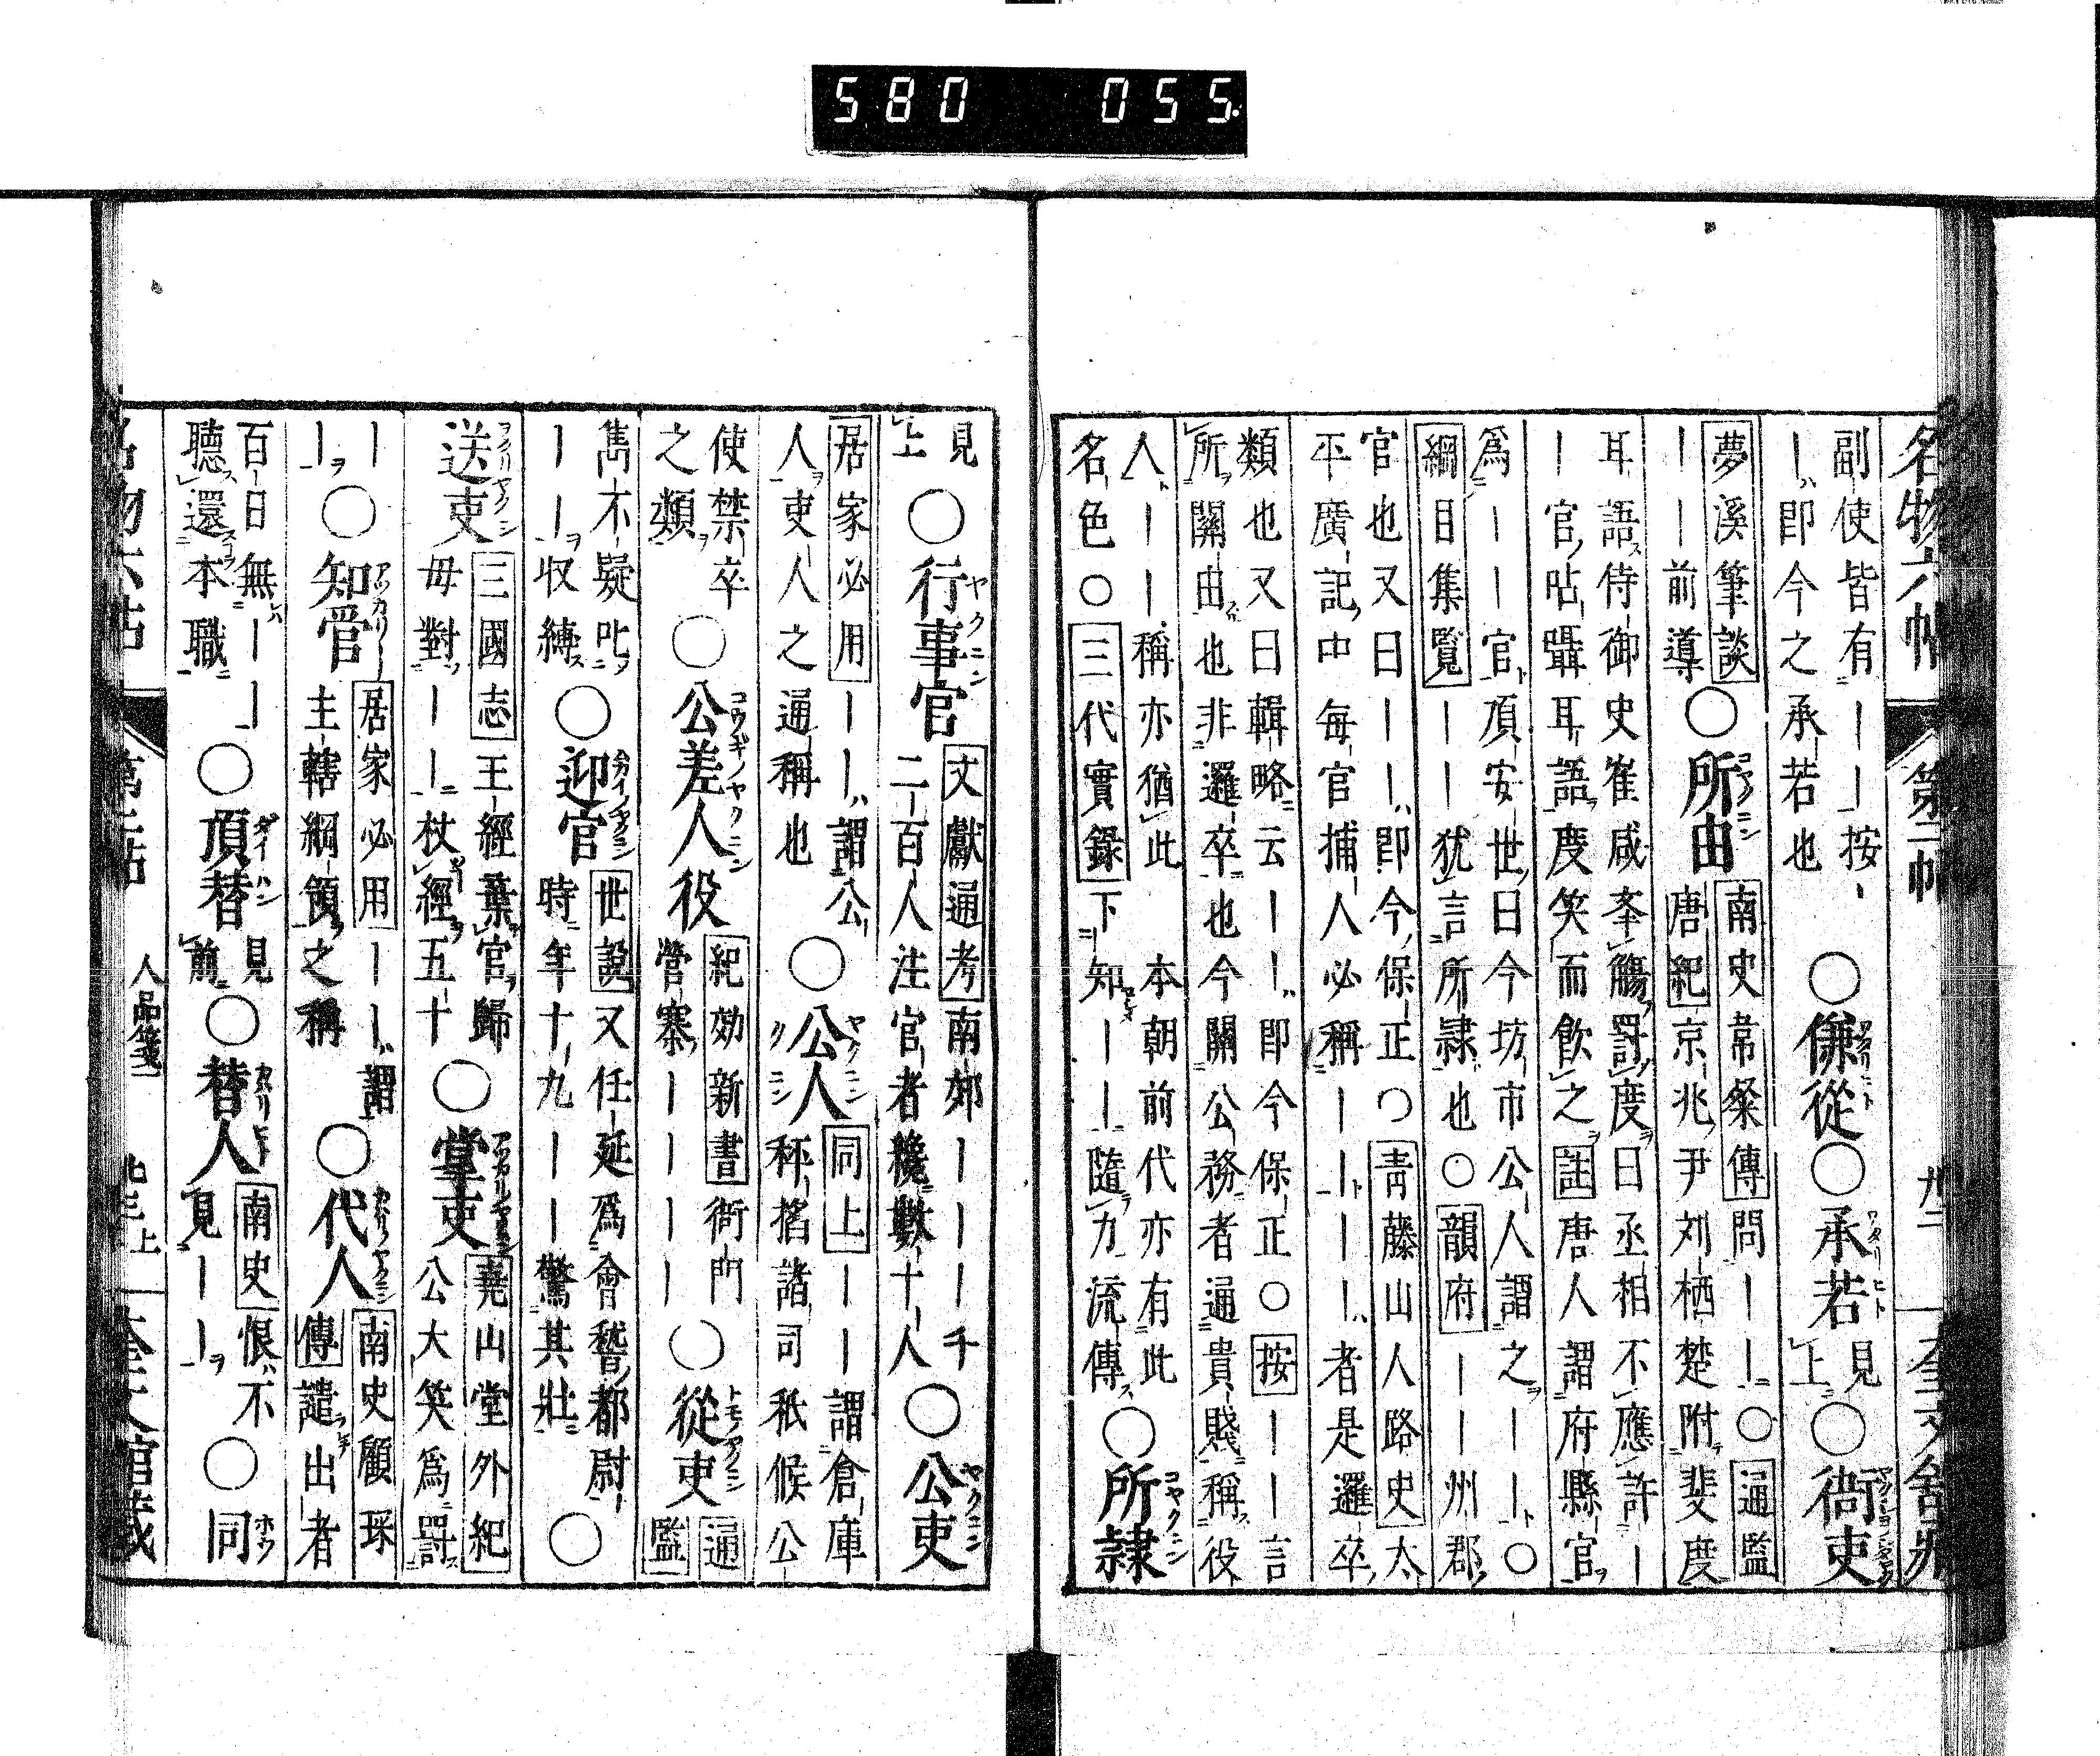 580 055.
名物六帖 第二帖 奎文舘蔵
副使皆有｜｜按
｜即今之承若也
○傔從○承若見上○衙吏
夢溪筆談｜｜前導
○所由
南史常粲傳問｜｜○通鑑
唐紀京兆尹刘栖楚附斐度
耳語侍御史崔咸奉觴罰度曰丞相不應許｜
｜官呫囁耳語度笑而飲之註唐人謂府縣官
爲｜｜官項安世曰今坊市公人謂之｜｜○
綱目集覧｜｜｜犹言所隷也○韻府｜｜州郡
官也又曰｜｜即今保正○青藤山人路史太
平廣記中每官捕人必稱｜｜｜｜者是邏卒
類也又曰輯略云｜｜即今保正○按｜｜言
所關由也非邏卒也今關公務者通貴賤稱役
人｜｜稱亦猶此 本朝前代亦有此
名色○三代實錄下知｜｜隨力流傳
○所隷
見上
○行事官
文獻通考南郊｜｜｜千
二百人注官者纔數十人
○公吏
居家必用｜｜謂公
人吏人之通稱也
○公人
同上｜｜謂倉庫
秤掐諸司祇候公
使禁卒
之類
○公差人役
紀効新書衙門
營寨｜｜｜｜
○從吏
通
鑑
雋不疑叱
｜｜收縛
○迎官
世說又任延爲會稽都尉
時年十九｜｜驚其壯
○
送吏
三國志王經葉官歸
毋對｜｜杖經五十
○掌吏
堯山堂外紀
公大笑爲罰
｜
｜
○知官
居家必用｜｜謂
主轄綱領之稱
○代人
南史顧琛
傳譴出者
百日無｜｜
聴還本職
○頂替見前
○替人
南史恨不
見｜｜
○同
人品箋